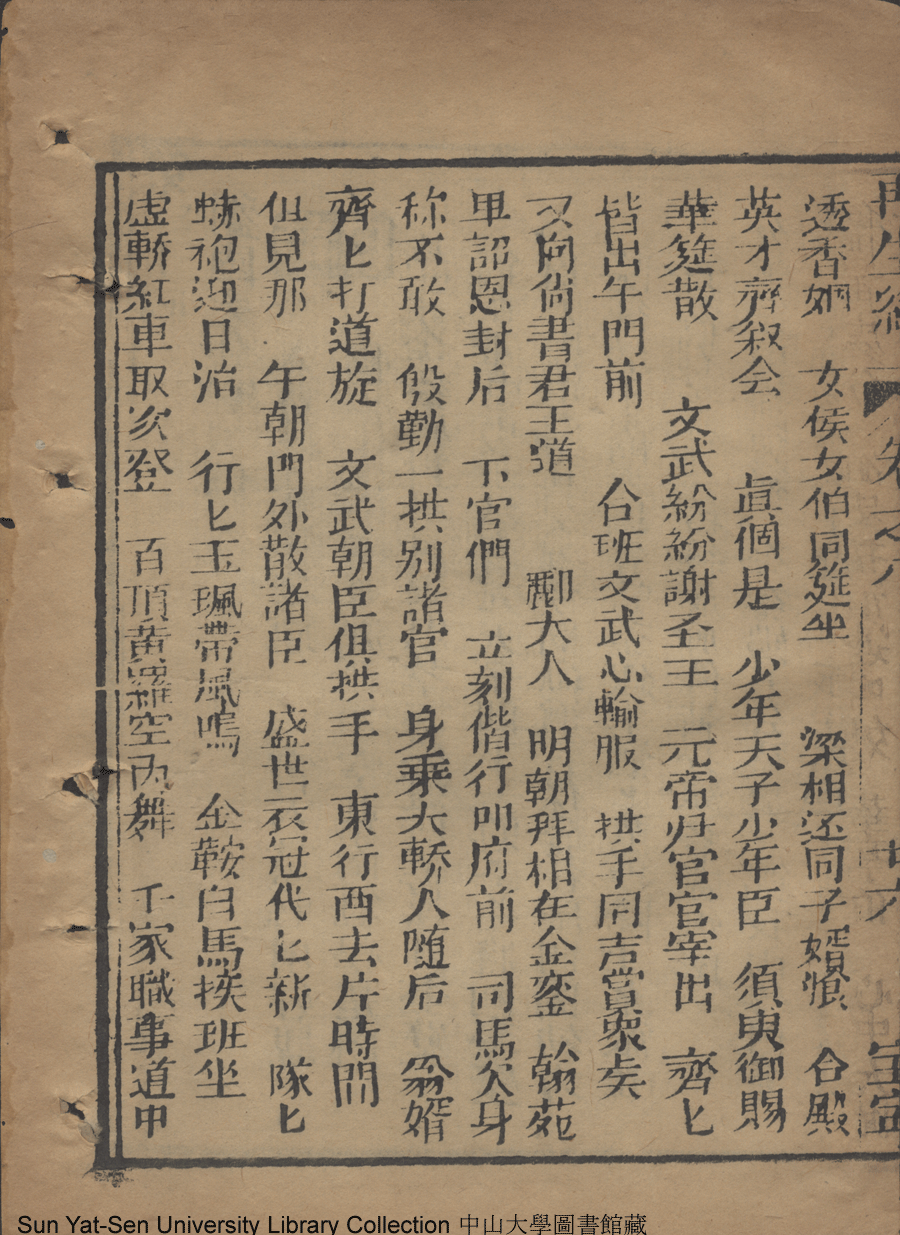 再生緣 卷之八 廿六 宝寧
透香烟 女侯女伯同筵坐 梁相还同子婿懽 合殿
英才齊叙会 眞個是 少年天子少年臣 須臾御賜
華筵散 文武紛紛謝圣王 元帝归宫官宰出 齊匕
皆出午門前 合班文武心輸服 拱手同言賞衆矣
又向尚書君王道 酈大人 明朝拜相在金銮 翰苑
里詔恩封后 下官們 立刻偕行叩府前 司馬欠身
称不敢 慇勤一拱别諸官 身乗大轎人随后 翁婿
齊匕打道旋 文武朝臣俱拱手 東行西去片時間
但見那 午朝門外散諸臣 盛世衣冠代匕新 隊匕
蟒袍迎日治 行匕玉珮帶風鳴 金鞍白馬挨班坐
虚轎紅車取次登 百頂黄羅空内舞 千家職事道中
Sun Yat-Sen University Library Collection 中山大學圖書館藏